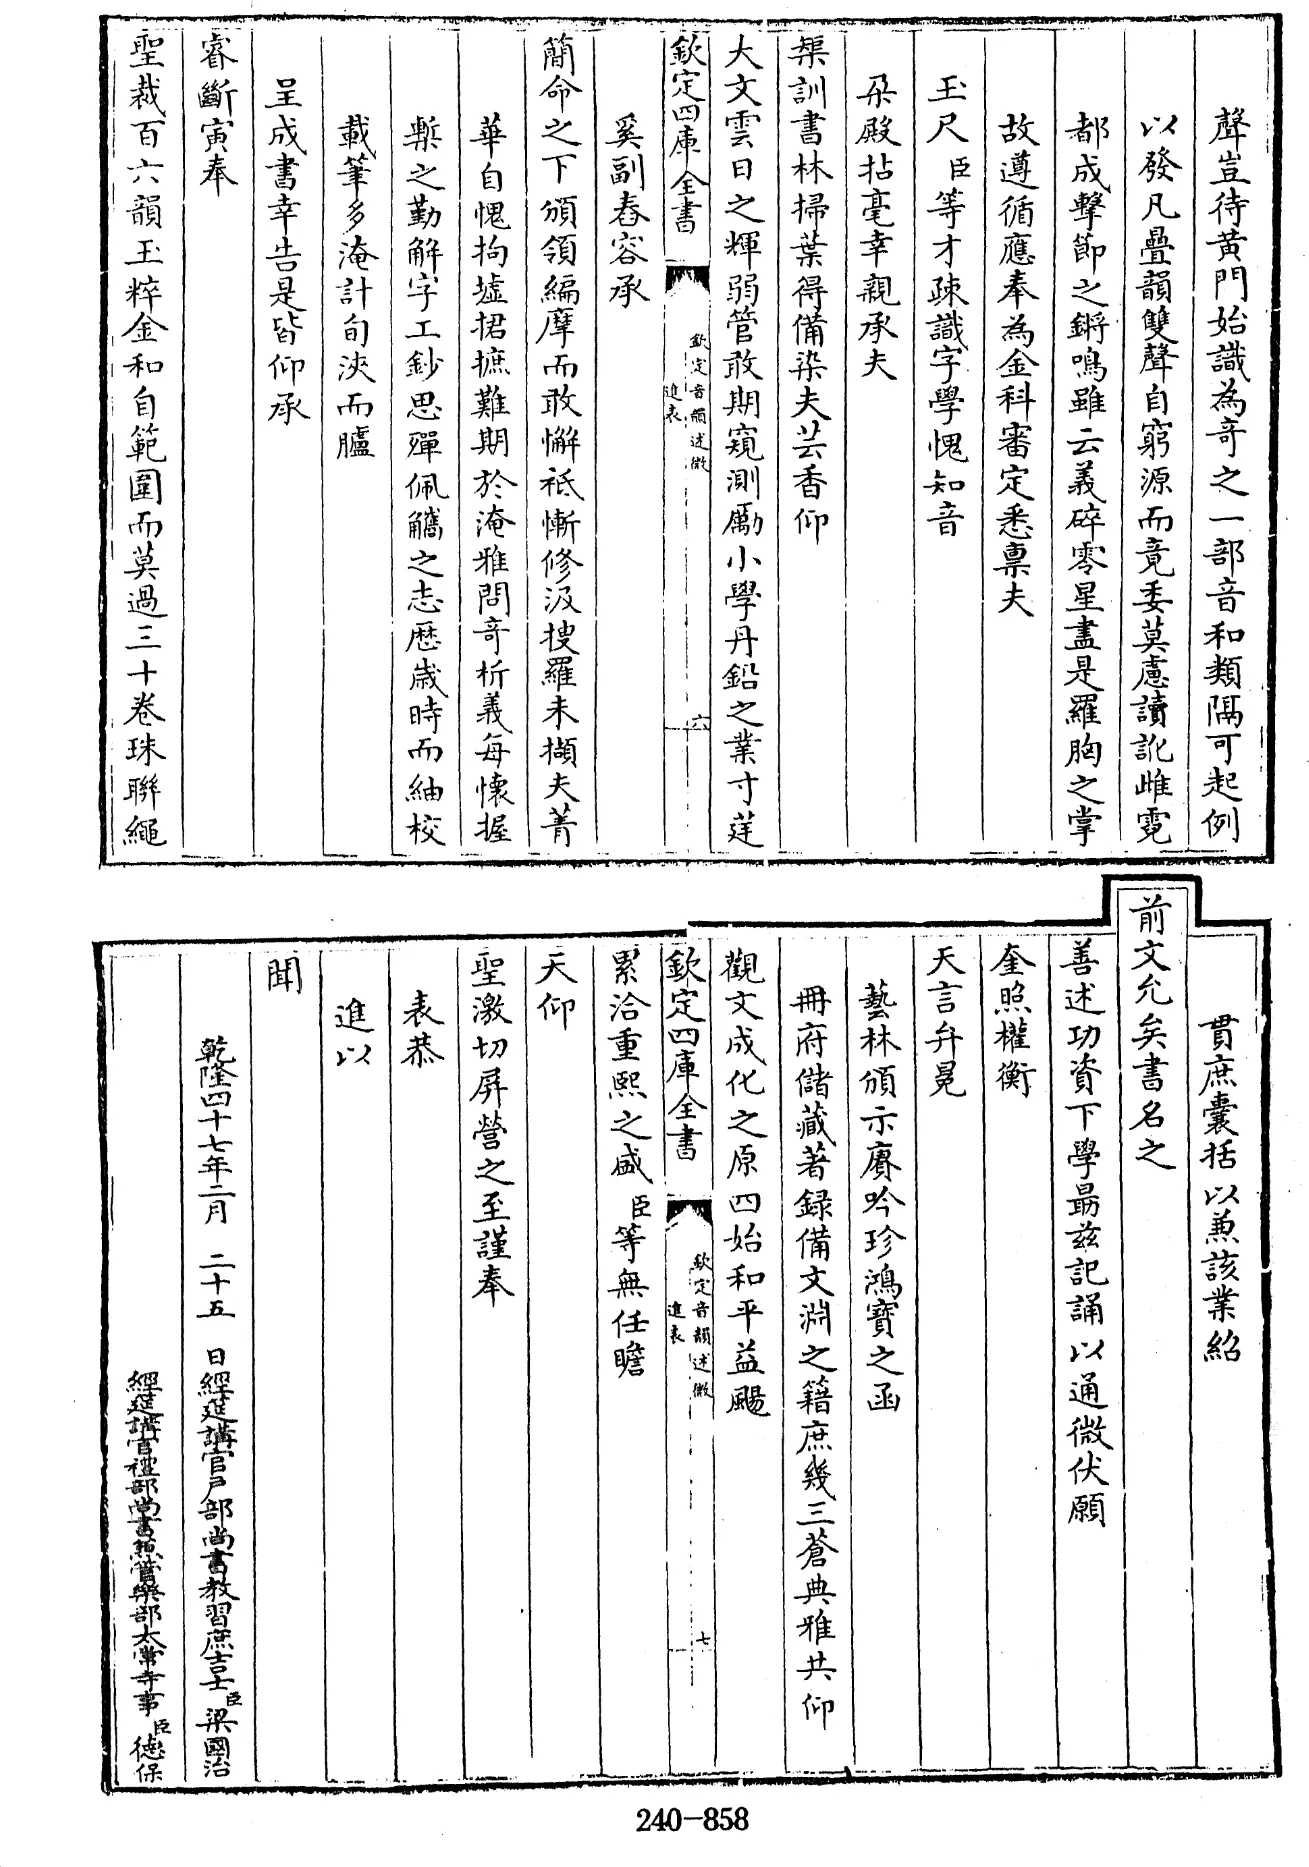 聲豈待黄門始識為奇之一部音和類隔可起例
以發凡疊韻雙聲自窮源而竟委莫慮讀訛雌霓
都成擊節之鏘鳴雖云義碎零星盡是羅胸之掌
故遵循應奉為金科審定悉禀夫
玉尺臣等才疎識字學愧知音
朶殿拈毫幸親承夫
榘訓書林掃葉得備染夫芸香仰
大文雲日之輝弱管敢期窺測勵小學丹鉛之業寸莛
欽定四庫全書
欽定音韻述微
進表
六
奚副舂容承
簡命之下頒領編摩而敢懈祗慚修汲捜羅未擷夫菁
華自愧拘墟捃摭難期於淹雅問奇析義每懷握
槧之勤解字工鈔思殫佩觿之志歴嵗時而紬校
載筆多淹計旬浹而臚
呈成書幸告是皆仰承
睿斷寅奉
聖裁百六韻玉粹金和自範圍而莫過三十卷珠聯繩
貫庶囊括以兼該業紹
前文允矣書名之
善述功資下學朂兹記誦以通微伏願
奎照權衡
天言弁冕
藝林頒示賡吟珍鴻寶之函
冊府儲藏著録備文淵之籍庶幾三蒼典雅共仰
觀文成化之原四始和平益颺
欽定四庫全書
欽定音韻述微
進表
七
累洽重熙之盛臣等無任瞻
天仰
聖激切屏營之至謹奉
表恭
進以
聞
乾隆四十七年二月 二十五 日經筵講官戸部尚書教習庶吉士臣梁國治
經筵講官禮部尚書兼管樂部太常寺事臣德保
240-858